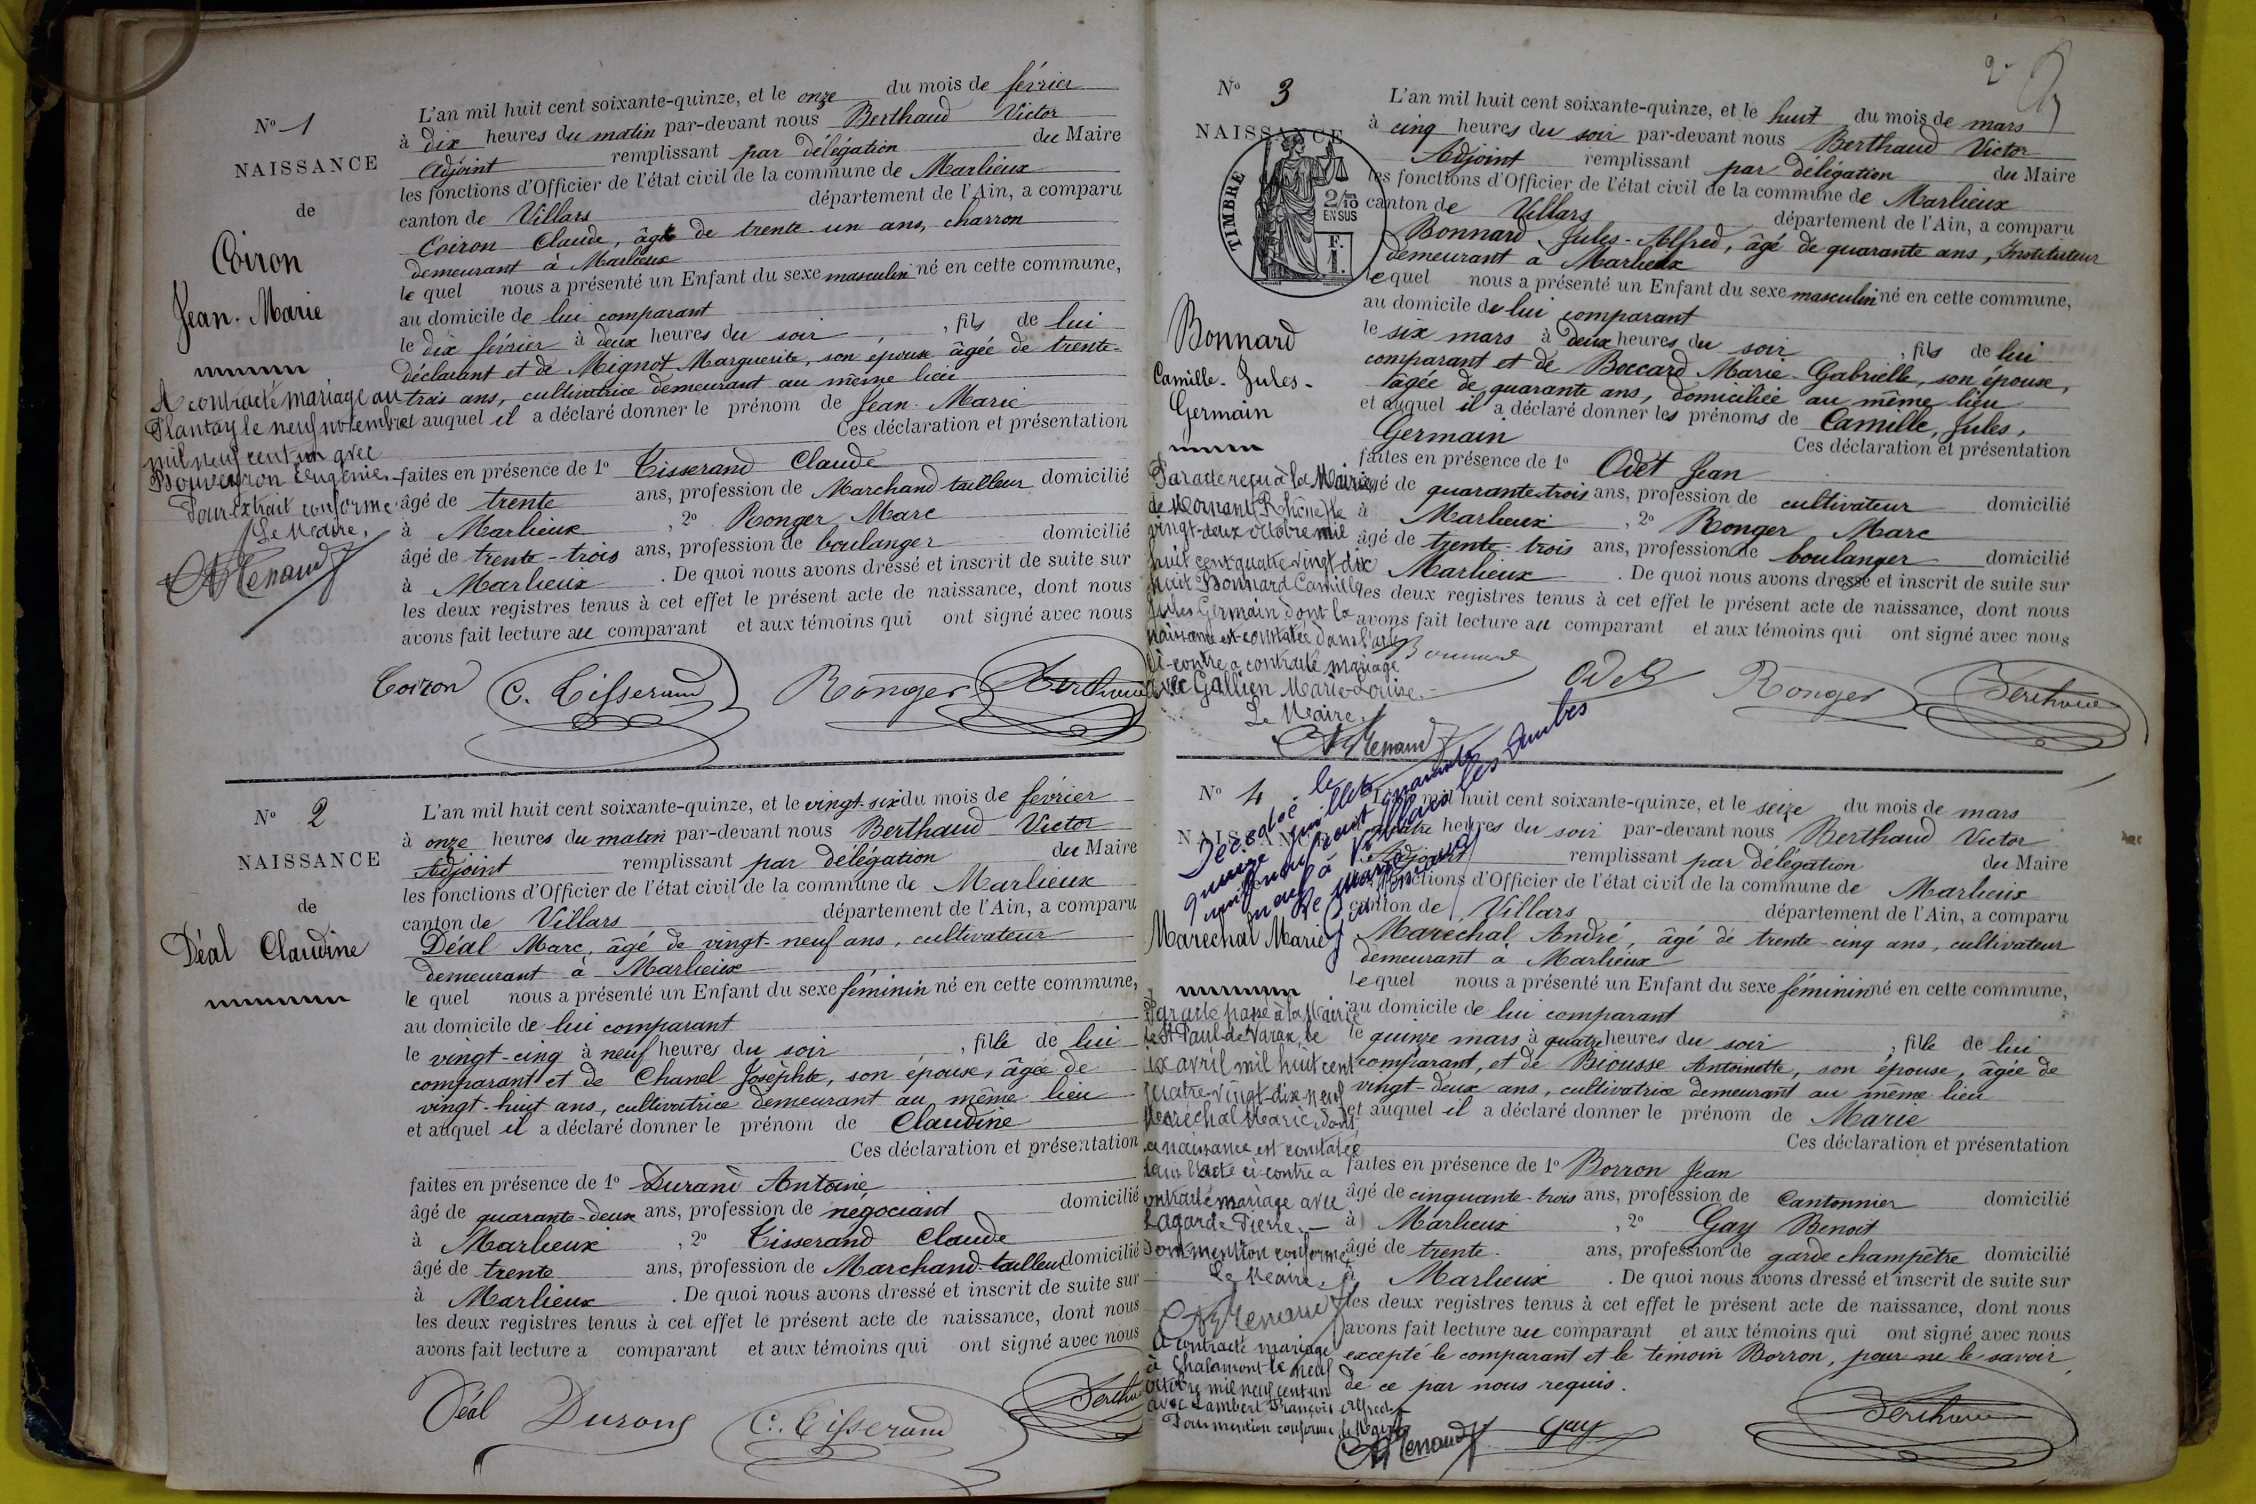 No 1
NAISSANCE
de
Coiron
Jean-Marie
A contracté mariage au
Plantay le neuf novembre
mil neuf cent un avec
Bouveyron Eugénie.
Pour extrait conforme
Le Maire,
L'an mil huit cent soixante-quinze, et le onze du mois de février
à dix heures du matin par-devant nous Berthaud Victor
Adjoint remplissant par délégation du Maire
les fonctions d'Officier de l'état civil de la commune de Marlieux
canton de Villars département de l'Ain, a comparu
Coiron Claude, âgé de trente-un ans, charron
demeurant à Marlieux
le quel nous a présenté un Enfant du sexe masculin né en cette commune,
au domicile de lui comparant
le dix février à deux heures du soir, fils de lui
déclarant et de Mignot Marguerite, son épouse âgée de trente-
trois ans, cultivatrice demeurant au même lieu
et auquel il a déclaré donner le prénom de Jean-Marie
Ces déclaration et présentation
faites en présence de 1o Tisserand Claude
âgé de trente ans, profession de Marchand tailleur domicilié
à Marlieux, 2o Ronger Marc
âgé de trente-trois ans, profession de boulanger domicilié
à Marlieux. De quoi nous avons dressé et inscrit de suite sur
les deux registres tenus à cet effet le présent acte de naissance, dont nous
avons fait lecture au comparant et aux témoins qui ont signé avec nous
Coiron C. Tisserand Ronger Berthaud
No 2
NAISSANCE
de
Déal Claudine
L'an mil huit cent soixante-quinze, et le vingt-six du mois de février
à onze heures du matin par-devant nous Berthaud Victor
Adjoint remplissant par délégation du Maire
les fonctions d'Officier de l'état civil de la commune de Marlieux
canton de Villars département de l'Ain, a comparu
Déal Marc, âgé de vingt-neuf ans, cultivateur
demeurant à Marlieux
le quel nous a présenté un Enfant du sexe féminin né en cette commune,
au domicile de lui comparant
le vingt-cinq à neuf heures du soir, fille de lui
comparant et de Chanel Josephte, son épouse, âgée de
vingt-huit ans, cultivatrice demeurant au même lieu
et auquel il a déclaré donner le prénom de Claudine
Ces déclaration et présentation
faites en présence de 1o Durand Antoine
âgé de quarante-deux ans, profession de négociant domicilié
à Marlieux, 2o Tisserand Claude
âgé de trente ans, profession de Marchand-tailleur domicilié
à Marlieux. De quoi nous avons dressé et inscrit de suite sur
les deux registres tenus à cet effet le présent acte de naissance, dont nous
avons fait lecture a comparant et aux témoins qui ont signé avec nous
Déal Durand C. Tisserand Berthaud
2
No 3
NAISSANCE
TIMBRE
2/10 EN SUS
Bonnard
Camille-Jules-
Germain
Par acte reçu à la Mairie
de Mornant (Rhône) le
vingt-deux octobre mil
huit cent quatre vingt-dix
huit Bonnard Camille
Jules Germain dont la
naissance est constatée dans l'acte
ci-contre a contracté mariage
avec Gallien Marie-Louise.-
Le Maire,
L'an mil huit cent soixante-quinze, et le huit du mois de mars
à cinq heures du soir par-devant nous Berthaud Victor
Adjoint remplissant par délégation du Maire
les fonctions d'Officier de l'état civil de la commune de Marlieux
canton de Villars département de l'Ain, a comparu
Bonnard Jules-Alfred, âgé de quarante ans, Instituteur
demeurant à Marlieux
le quel nous a présenté un Enfant du sexe masculin né en cette commune,
au domicile de lui comparant
le six mars à deux heures du soir, fils de lui
comparant et de Boccard Marie-Gabrielle, son épouse,
âgée de quarante ans, domiciliée au même lieu
et auquel il a déclaré donner les prénoms de Camille, Jules,
Germain Ces déclaration et présentation
faites en présence de 1o Odet Jean
âgé de quarante-trois ans, profession de cultivateur domicilié
à Marlieux, 2o Ronger Marc
âgé de trente-trois ans, profession de boulanger domicilié
à Marlieux. De quoi nous avons dressé et inscrit de suite sur
les deux registres tenus à cet effet le présent acte de naissance, dont nous
avons fait lecture au comparant et aux témoins qui ont signé avec nous
Bonnard Odet Ronger Berthaud
No 4
NAISSANCE
Décédée le
quinze juillet
mil neuf cent quarante
neuf à Villars les Dombes
Le Maire
Maréchal Marie
Par acte passé à la Mairie
de St Paul-de-Varax, le
avril mil huit cent
quatre-vingt-dix-neuf
Maréchal Marie, dont
la naissance est constatée
dans l'acte ci-contre a
contracté mariage avec
Lagarde Pierre.-
Pour mention conforme,
Le Maire,
A contracté mariage
à Chalamont le neuf
octobre mil neuf cent un
avec Lambert François Alfred
Pour mention conforme, le Maire
L'an mil huit cent soixante-quinze, et le seize du mois de mars
à quatre heures du soir par-devant nous Berthaud Victor
Adjoint remplissant par délégation du Maire
les fonctions d'Officier de l'état civil de la commune de Marlieux
canton de Villars département de l'Ain, a comparu
Maréchal André, âgé de trente-cinq ans, cultivateur
demeurant à Marlieux
le quel nous a présenté un Enfant du sexe féminin né en cette commune,
au domicile de lui comparant
le quinze mars à quatre heures du soir, fille de lui
comparant, et de Biousse Antoinette, son épouse, âgée de
vingt-deux ans, cultivatrice demeurant au même lieu
et auquel il a déclaré donner le prénom de Marie
Ces déclaration et présentation
faites en présence de 1o Borron Jean
âgé de cinquante-trois ans, profession de Cantonnier domicilié
à Marlieux, 2o Gay Benoit
âgé de trente ans, profession de garde champêtre domicilié
à Marlieux. De quoi nous avons dressé et inscrit de suite sur
les deux registres tenus à cet effet le présent acte de naissance, dont nous
avons fait lecture au comparant et aux témoins qui ont signé avec nous
excepté le comparant et le témoin Borron, pour ne le savoir
de ce par nous requis.
Gay Berthaud